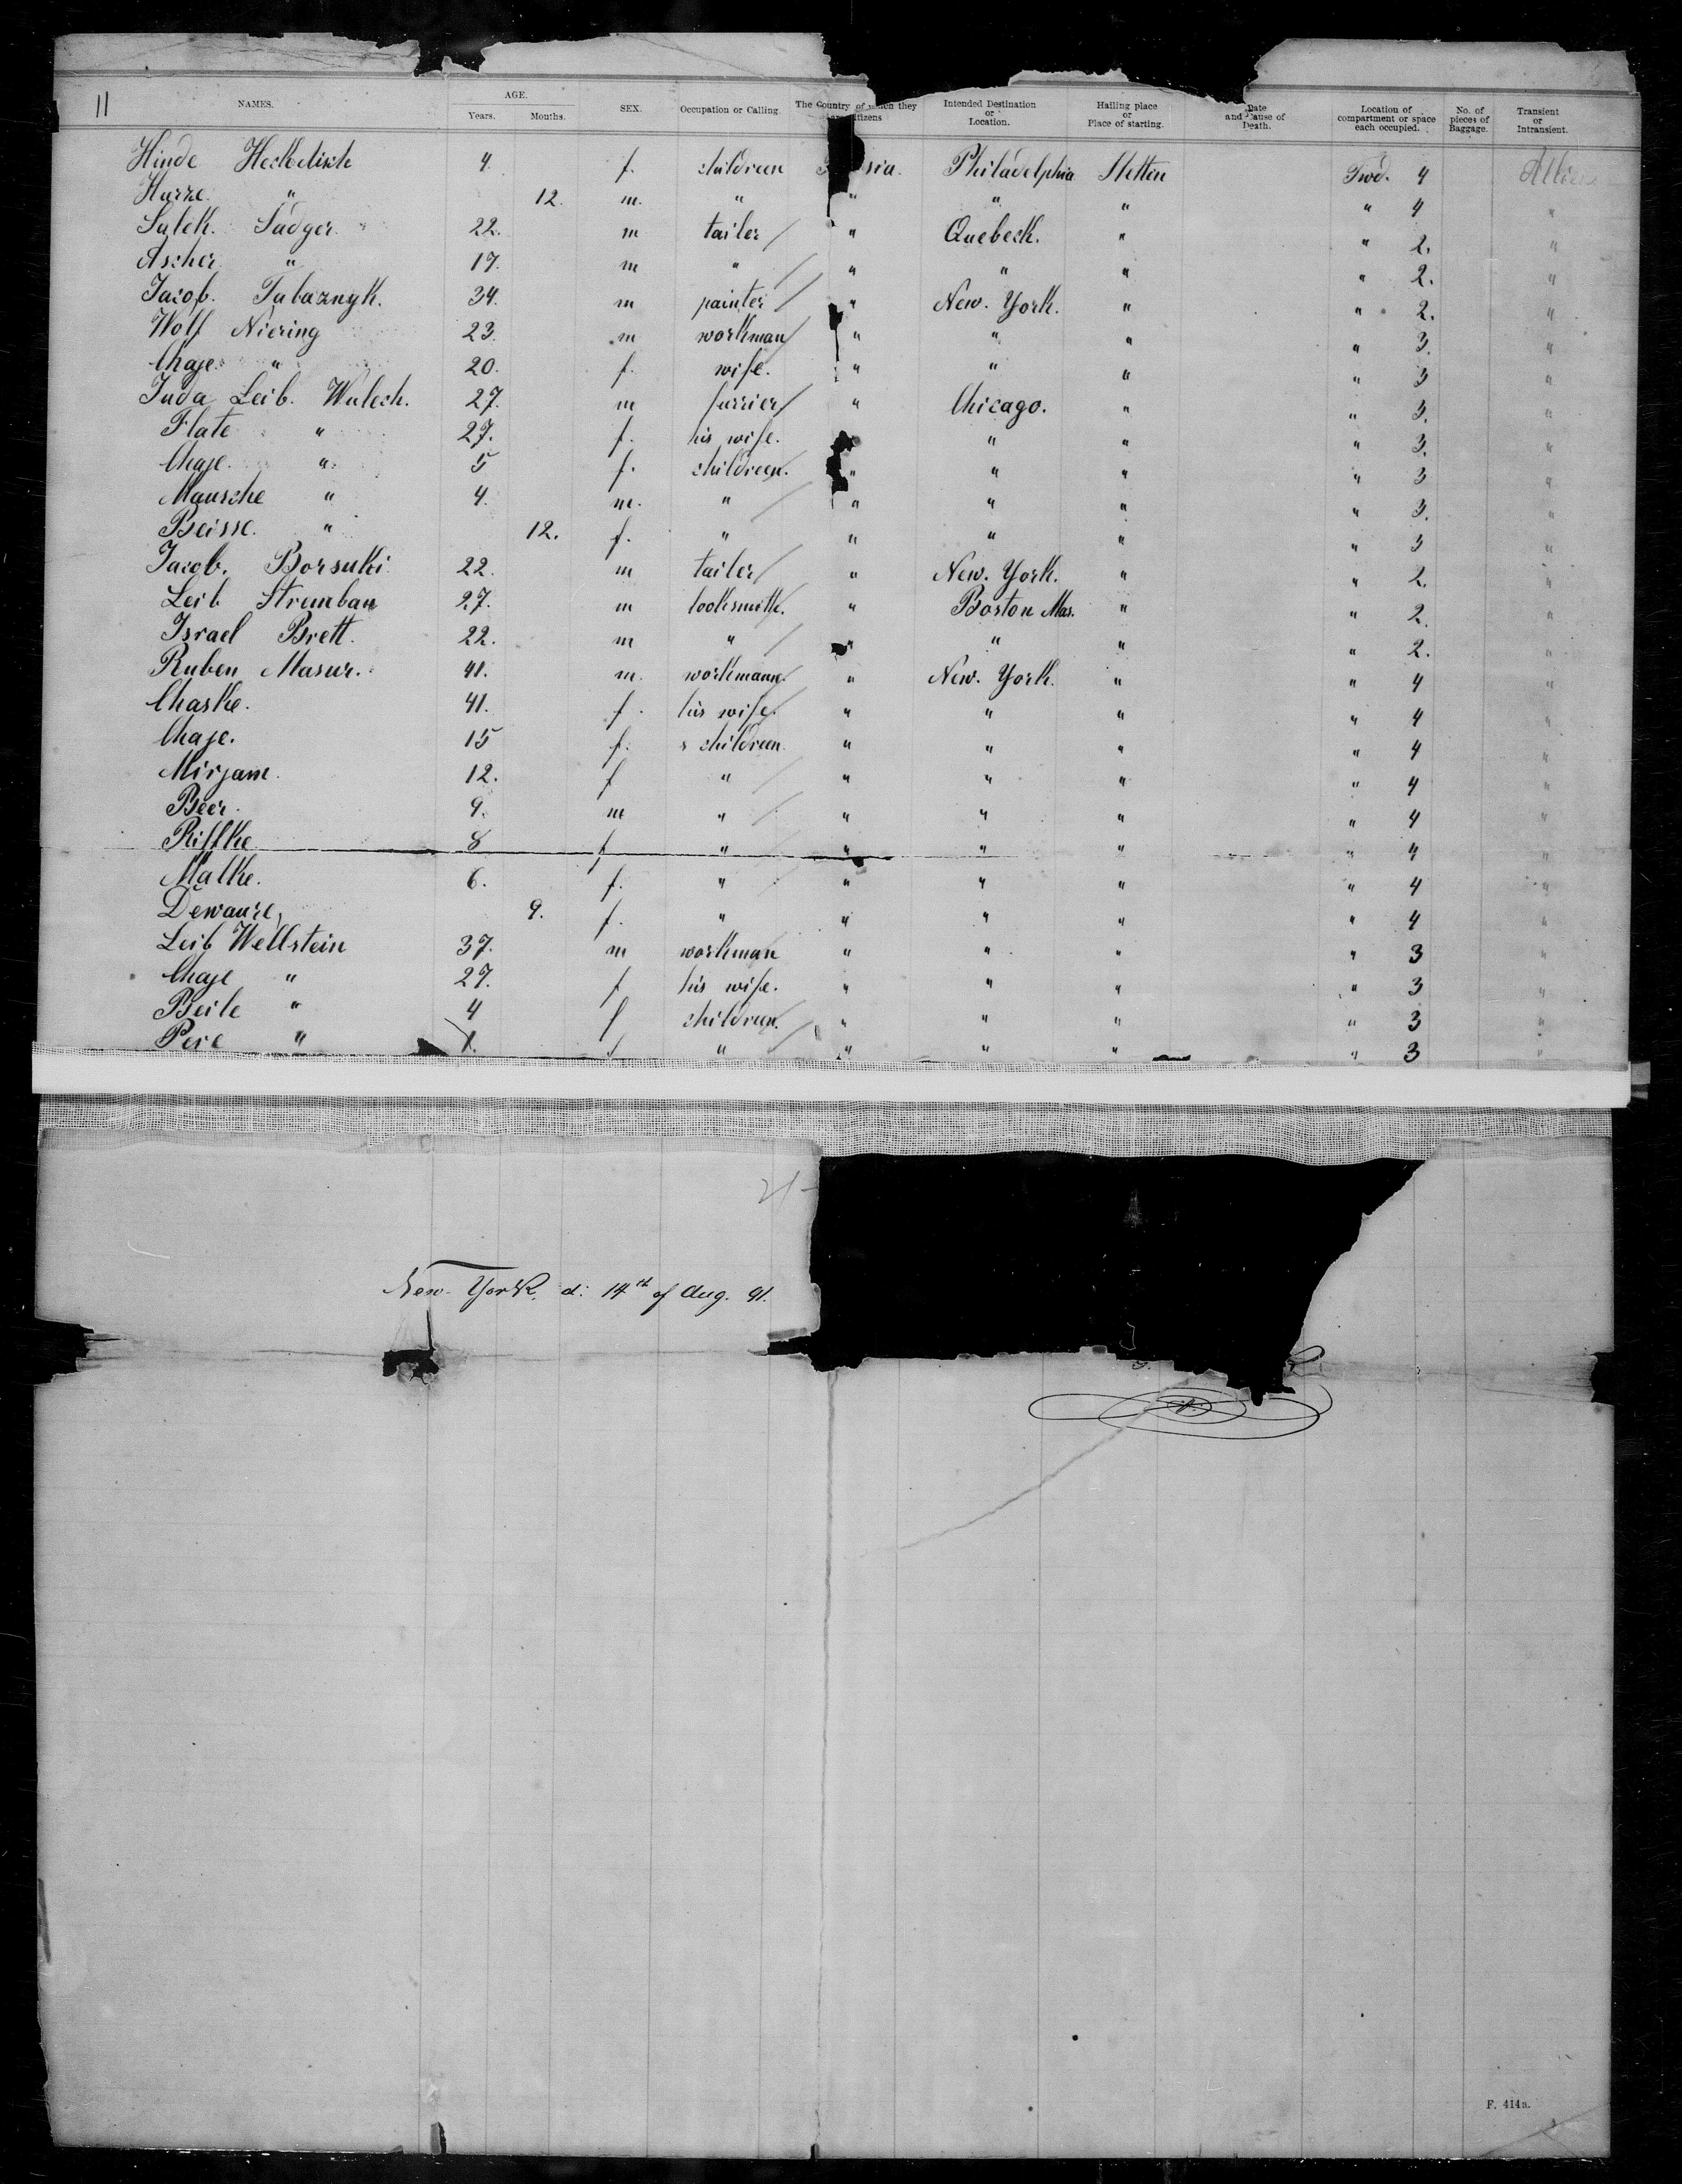 11
NAMES. AGE. Years. Months. SEX. Occupation or Calling. The Country of which they are citizens Intended Destination or Location. Hailing place or Place of starting. Date and Cause of Death. Location of compartment or space each occupied. No. of pieces of Baggage. Transient or Intransient.
Hinde 4. f. childreen sia. Philadelphia Stettin Twd. 4
" 12. m. " " " " " 4 "
Salek. Sadger 22. m tailer " Quebeck. " " 2. "
Ascher " 17. m " " " " " 2. "
Jacob. Tabaznyk. 34. m painter " New. York. " " 2. "
Wolf Niering 23. m workman " " " " 3. "
Chaje " 20. f. wife. " " " " 3 "
Juda Leib. Wulech. 27. m furrier " Chicago. " " 3. "
Flate " 27. f. his wife. " " " " 3. "
Chaje. " 5 f. childreen. " " " " 3 "
Mausche " 4. m. " " " " " 3. "
Beisse. " 12. f. " " " " " 3 "
Jacob. Borsuki 22. m tailer " New. York. " " 2. "
Leib Stremban 27. m looksmith. " Boston Mas. " " 2. "
Israel Brett. 22. m " " " " " 2. "
Ruben Masur. 41. m. workmann. " New. York. " " 4 "
Chaske. 41. f. his wife. " " " " 4 "
Chaje. 15 f. childreen. " " " " 4 "
Mirjam 12. f " " " " " 4 "
Beer. 9. m " " " " " 4 "
Riffke 8 f " " " " " 4 "
Malke. 6. f. " " " " " 4 "
Dewaure, 9. f. " " " " " 4 "
Leib Wellstein 37. m workman " " " " 3 "
Chaje " 27. f his wife. " " " " 3 "
Beile " 4 f childreen. " " " " 3 "
Pere " 1. f " " " " " 3 "
New-York. d: 14th of Aug. 91.
F. 414a.